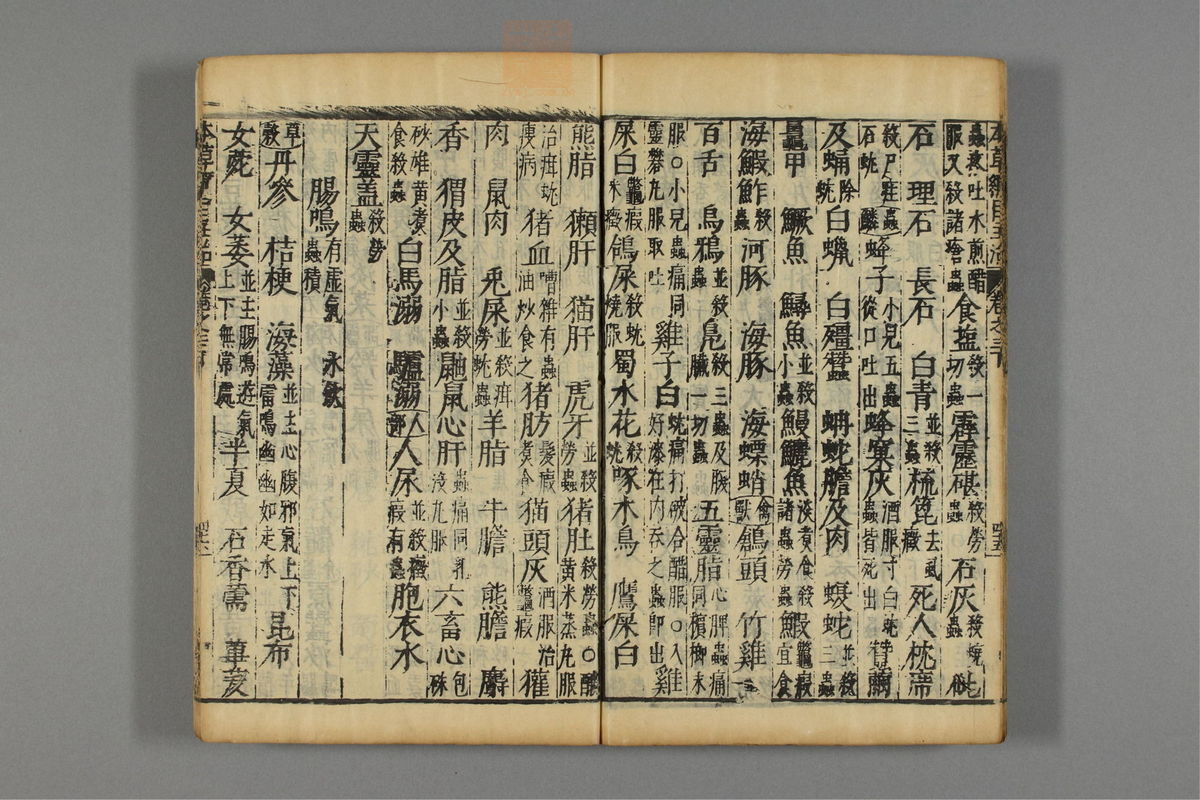 蟲疼吐水煎醋服又殺諸瘡蟲食鹽殺一切蟲霹靂碪殺勞蟲石灰殺蟯蟲
石 理石 長石 白青並殺三蟲梳箆去虱癥死人枕席
殺尸疰石蚘蟲鱗蜂子小兒五蟲從口吐出蜂窠灰酒服寸白蚘蟲皆死出
及蝻除蚘白蠟 白殭蠶 蚺蛇膽及肉 蝮蛇並殺三蟲
鼉甲 鱖魚 鱘魚並殺小蟲鰻鱺魚淡煮食殺諸蟲勞蟲鰕鼈瘕宜食
海鰕鮓殺蟲河豚 海豚 海螵蛸禽獸鶴頭 竹雞
百舌 烏鴉並殺蟲鳧殺三蟲及腹臟一切蟲五靈脂心脾蟲痛同檳榔末
服○小兒蟲痛同靈礬丸服取吐雞子白蚘痛打破合醋服○入好漆在內吞之蟲即出雞
屎白鼈瘕米癥鴿屎殺蚘燒服蜀水花殺蚘啄木鳥 鷹屎白
熊脂 獺肝 猫肝 虎牙並殺勞蟲猪肚殺勞蟲○釀黄米蒸丸服
治疳蚘瘦病猪血嘈雜有蟲油炒食之猪肪髮瘕煮食猫頭灰酒服治鼈瘕獾
肉 鼠肉 兎屎並殺疳勞蚘蟲羊脂 牛膽 熊膽 麝
香 猬皮及脂並殺小蟲鼬鼠心肝蟲痛同乳没丸服六畜心包硃
砂雄黄煮食殺蟲白馬溺 驢溺人部人尿並殺癥瘕有蟲胞衣水
天靈盖殺勞蟲
腸鳴有虛氣 水飲蟲積
草穀丹參 桔梗 海藻並主心腹邪氣上下雷鳴幽幽如走水昆布
女菀 女萎並主腸鳴遊氣上下無常處半夏 石香薷 蓽茇